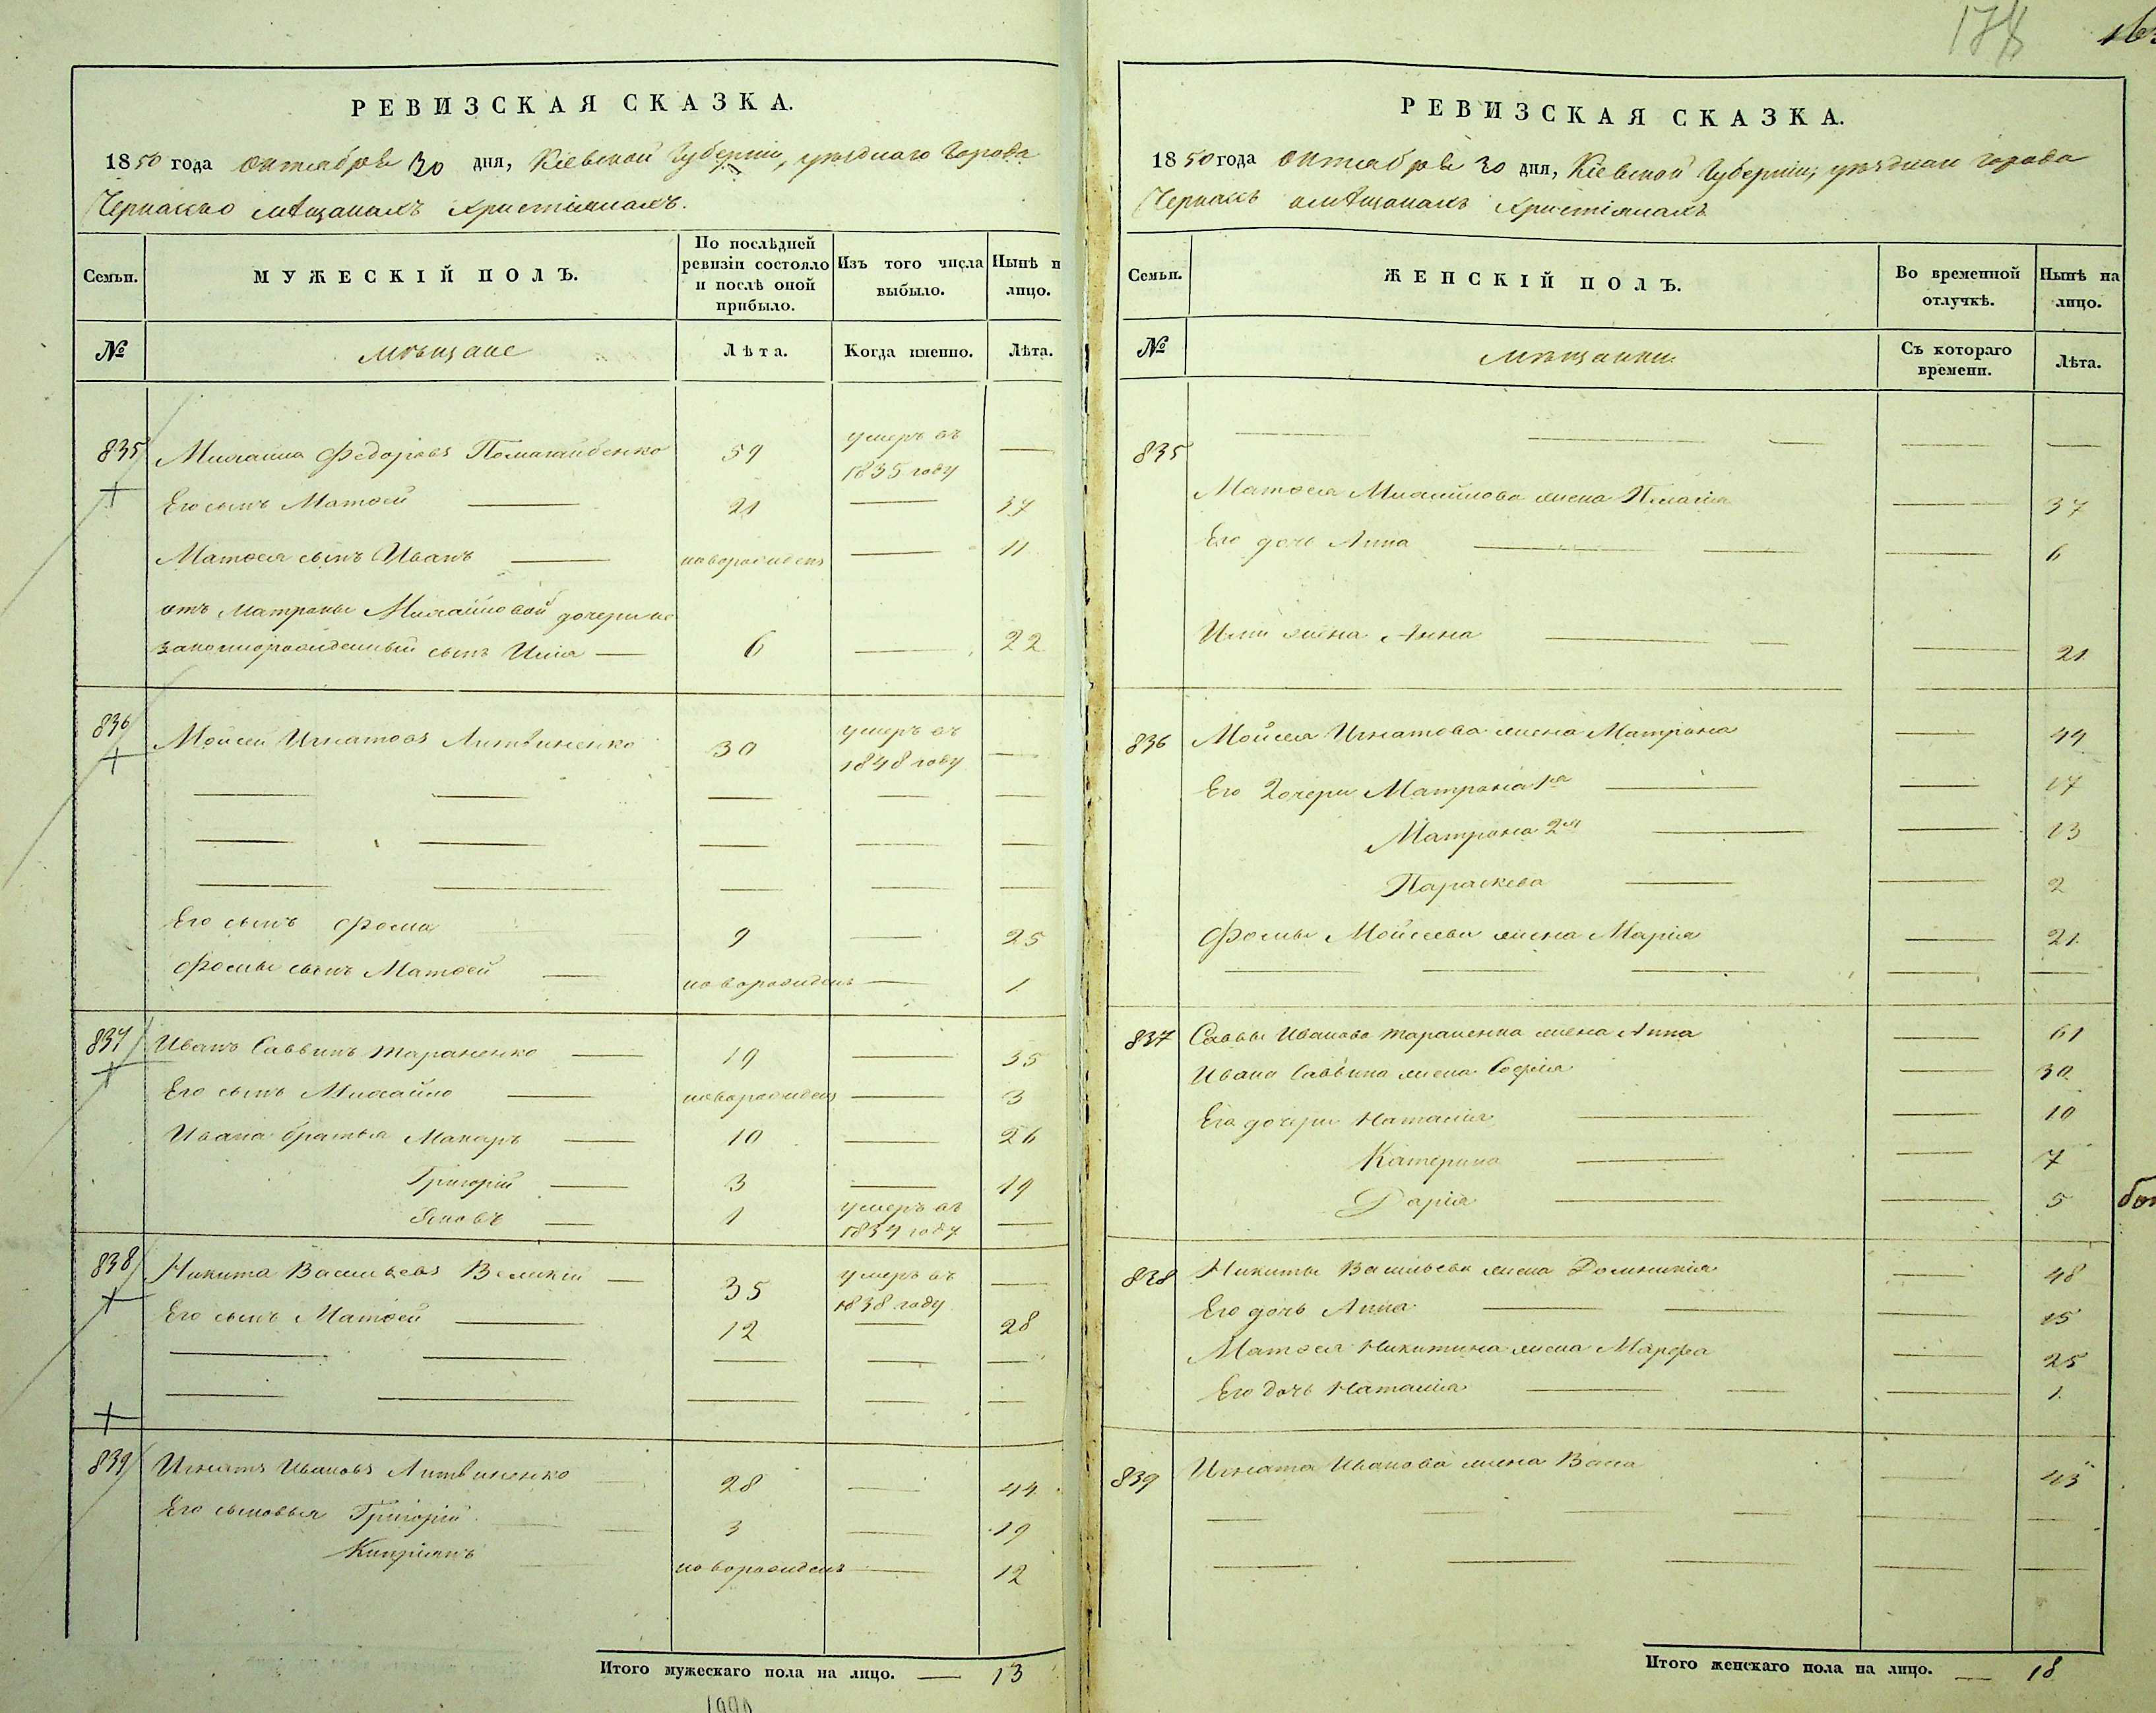 РЕВИЗСКАЯ СКАЗКА.
1850 года октября 30 дня, Кіевской Губерніи, уѣзднаго города
Черкасъ о мѣщанахъ христіянахъ.
Семьи.
МУЖЕСКІЙ ПОЛЪ.
По послѣдней ревизіи состояло и послѣ оной прибыло.
Изъ того числа выбыло.
Нынѣ н лицо.
№
мѣщане
Лѣта.
Когда именно.
Лѣта.
835 Михайла Федоровъ 59 умеръ въ 1835 году —
Его сынъ Матѳей — 21 — 37
Матѳея сынъ Иванъ — новорожденъ — 11
отъ Матроны Михайловой дочери не
законнорожденный сынъ Илія — 6 — 22
836 Мойсей Игнатовъ Литвиненко 30 умеръ въ 1848 году —
Его сынъ Фома 9 — 25
Фомы сынъ Матѳей — новорожденъ — 1
837 Иванъ Саввинъ Тараненко — 19 — 35
Его сынъ Михайло — новорожденъ — 3
Ивана братья Макаръ — 10 — 26
Григорій — 3 — 19
Яковъ — 1 умеръ въ 1834 году —
838 Никита Васильевъ Великій — 35 умеръ въ 1838 году —
Его сынъ Матѳей — 12 — 28
839 Игнатъ Ивановъ Литвиненко 28 — 44
Его сыновья Григорій 3 — 19
Кипріянъ новорожденъ — 12
Итого мужескаго пола на лицо. — 13
178
РЕВИЗСКАЯ СКАЗКА.
1850 года октября 30 дня, Кіевской Губерніи, уѣзднаго города
Черкасъ о мѣщанахъ христіянахъ
Семьи.
ЖЕНСКІЙ ПОЛЪ.
Во временной отлучкѣ.
Нынѣ на лицо.
№
мѣщанки
Съ котораго времени.
Лѣта.
835
Матѳея Михайлова жена Пелагія — 37
Его дочь Анна — 6
Иліи жена Анна — 21
836 Мойсея Игнатова жена Матрона — 44
Его дочери Матрона 1я — 17
Матрона 2я — 13
Параскева — 2
Фомы Мойсеева жена Марія — 21
837 Саввы Иванова Тараненка жена Анна — 61
Ивана Саввина жена Софія — 30
Его дочери Наталія — 10
Катерина — 7
Дарія — 5
838 Никиты Васильева жена Домникія — 48
Его дочь Анна — 15
Матѳея Никитина жена Марфа — 25
Его дочь Наталія — 1
839 Игната Иванова жена Васа — 43
Итого женскаго пола на лицо. — 18